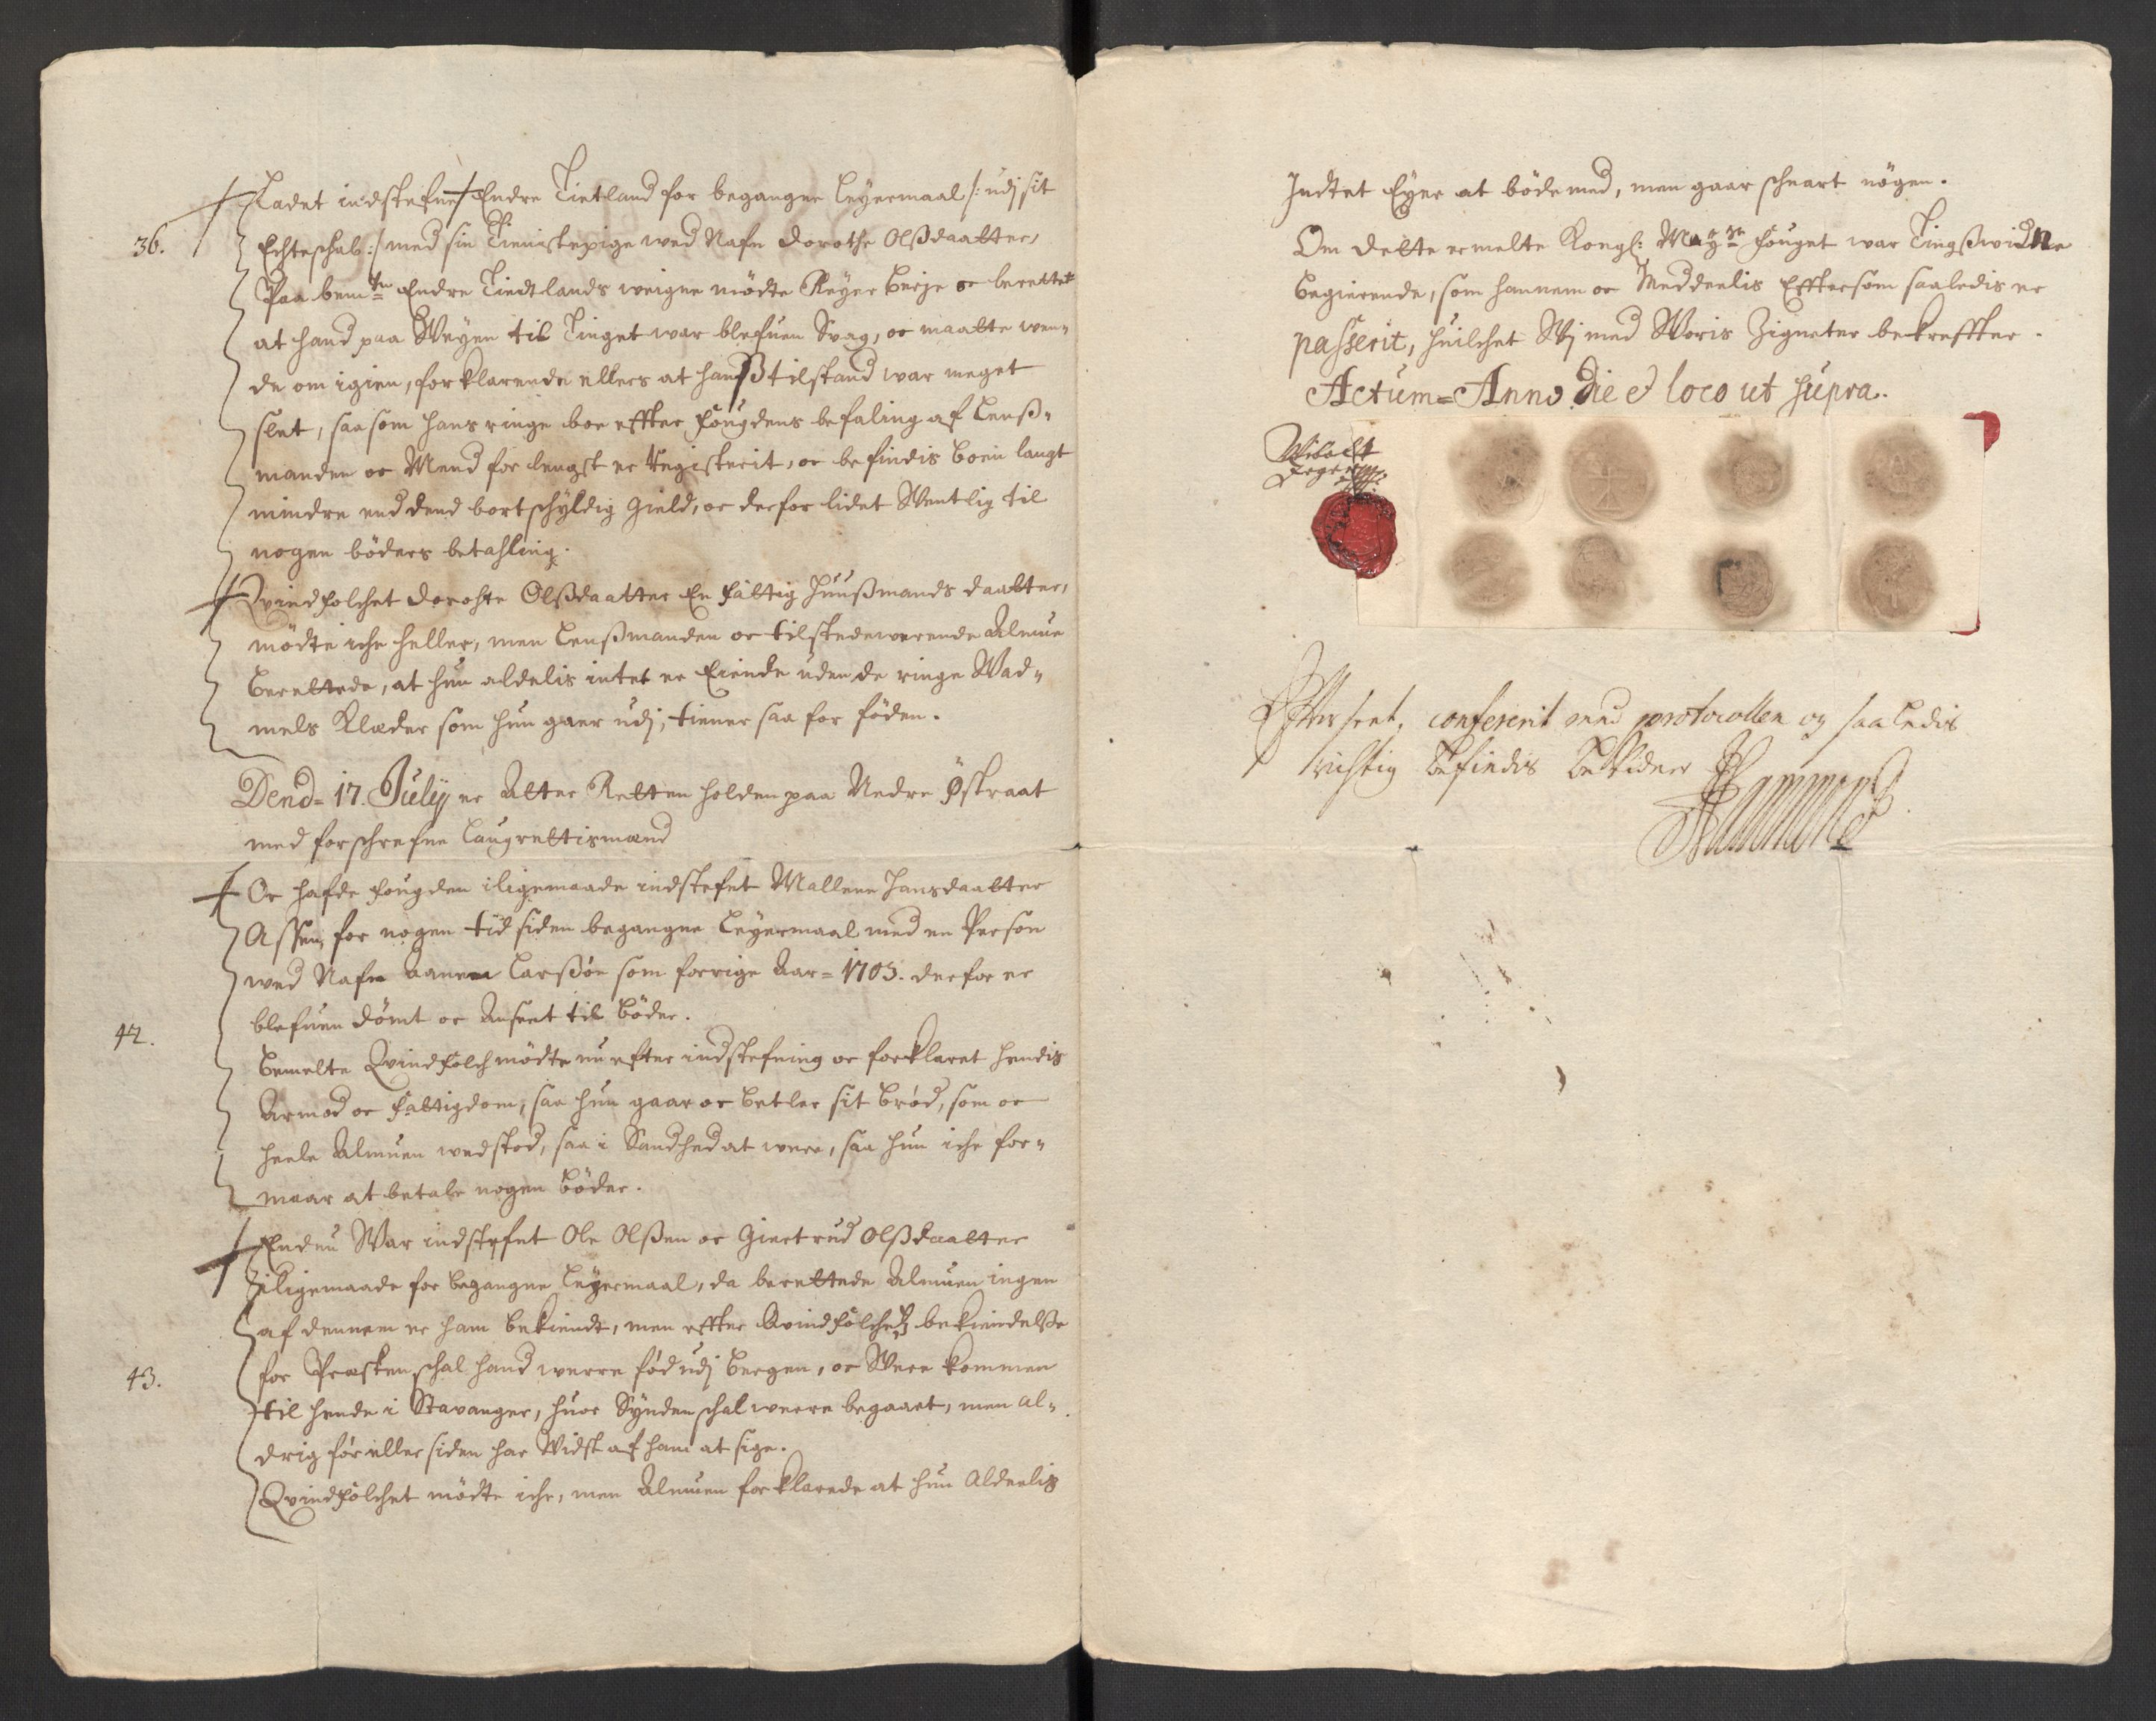 Ladet indstefne Endre Tietland for begangne Leyermaal /: udj sit
36.
Echteschab :/ med sin Tienistepige wed Nafn Dorothe Olßdaatter,
Paa bemte Endre Tiedtlands weigne mödte Reyer Berje oc berettet
at hand paa Weyen til Tinget war blefuen Svag, oc maatte wen-
de om igien, forklarende ellers at hanß tilstand war meget
slet, saasom hans ringe boe effter Fougdens befaling af Lenß-
manden oc Mend for lengst er Registerit, oc befindis boen langt
mindre end dend bortschyldig Gield, oc derfor lidet Wentlig til
nogen böders betahling.
Qvindfolchet Dorothe Olßdaatter En fattig Huußmands daatter,
mödte iche heller, men Lenßmanden oc tilstedewerende Almue
berettede, at hun aldelis intet er Eiende uden de ringe Wad-
mels Klæder som hun gaar udj, tiener saa for föden.
Dend = 17. Julij er Atter Retten holden paa Nedre Östraat
med forschrefne Laugrettismænd
Oc hafde Fougden iligemaade indstefnt Mallene Hansdaatter
Assen, for nogen tid siden begangne Leyermaal med en Person
wed Nafn Aanen Larßön som forrige Aar = 1703. derfor er
blefuen dömt oc Anseet til Böder.
42.
Bemelte Qvindfolch mödte nu efter indstefning oc forklaret hendis
Armod oc fattigdom, saa hun gaar oc betler sit bröd, som oc
heele Almuen wedstod, saa i Sandhed at were, saa hun iche for-
maar at betale nogen Böder.
Endnu War indstefnt Ole Olßen oc Giertrud Olßdaatter
iligemaade for begangne Leyermaal, da berettede Almuen ingen
af dennem er ham bekiendt, men effter Qvindfolchetz bekiendelße
43.
for Præsten schal hand werre föd udj Bergen, oc Were kommen
til hende i Stavanger, huor Synden schal werre begaaet, men al-
drig för eller siden har Widst af ham at sige.
Qvindfolchet mödte iche, men Almuen forklarede at hun Aldeelis
Indtet Eyer at böde med, men gaar schnart nögen.
Om dette ermelte Kongl: Mayts Fouget war Tingßwidne
begierende, som hannem oc Meddeelis Efftersom saaledis er
passerit, huilchet Wj med Woris Zigneter bekreffter.
Actum = Anno Die et loco ut supra.
Wibolt
Efterseet, confererit med protocollen og saaledis
rigtig befindis bekiender
Hammond